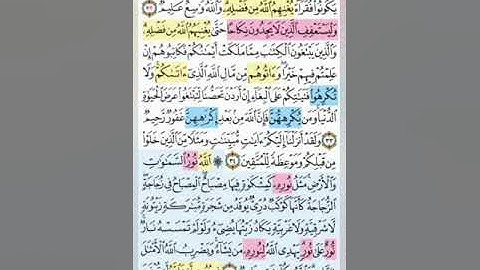 يَكُونُوا۟ فُقَرَآءَ يُغْنِهِمُ ٱللَّهُ مِن فَضْلِهِۦ ۗ وَٱللَّهُ وَٰسِعٌ عَلِيمٌ ۝٣٢
وَلْيَسْتَعْفِفِ ٱلَّذِينَ لَا يَجِدُونَ نِكَاحًا حَتَّىٰ يُغْنِيَهُمُ ٱللَّهُ مِن فَضْلِهِۦ ۗ
وَٱلَّذِينَ يَبْتَغُونَ ٱلْكِتَٰبَ مِمَّا مَلَكَتْ أَيْمَٰنُكُمْ فَكَاتِبُوهُمْ إِنْ
عَلِمْتُمْ فِيهِمْ خَيْرًا ۖ وَءَاتُوهُم مِّن مَّالِ ٱللَّهِ ٱلَّذِىٓ ءَاتَىٰكُمْ ۚ وَلَا
تُكْرِهُوا۟ فَتَيَٰتِكُمْ عَلَى ٱلْبِغَآءِ إِنْ أَرَدْنَ تَحَصُّنًا لِّتَبْتَغُوا۟ عَرَضَ ٱلْحَيَوٰةِ
ٱلدُّنْيَا ۚ وَمَن يُكْرِههُّنَّ فَإِنَّ ٱللَّهَ مِنۢ بَعْدِ إِكْرَٰهِهِنَّ غَفُورٌ رَّحِيمٌ
۝٣٣ وَلَقَدْ أَنزَلْنَآ إِلَيْكُمْ ءَايَٰتٍ مُّبَيِّنَٰتٍ وَمَثَلًا مِّنَ ٱلَّذِينَ خَلَوْا۟
مِن قَبْلِكُمْ وَمَوْعِظَةً لِّلْمُتَّقِينَ ۝٣٤ ۞ ٱللَّهُ نُورُ ٱلسَّمَٰوَٰتِ
وَٱلْأَرْضِ ۚ مَثَلُ نُورِهِۦ كَمِشْكَوٰةٍ فِيهَا مِصْبَاحٌ ۖ ٱلْمِصْبَاحُ فِى زُجَاجَةٍ ۖ
ٱلزُّجَاجَةُ كَأَنَّهَا كَوْكَبٌ دُرِّىٌّ يُوقَدُ مِن شَجَرَةٍ مُّبَٰرَكَةٍ زَيْتُونَةٍ
لَّا شَرْقِيَّةٍ وَلَا غَرْبِيَّةٍ يَكَادُ زَيْتُهَا يُضِىٓءُ وَلَوْ لَمْ تَمْسَسْهُ نَارٌ ۚ
نُّورٌ عَلَىٰ نُورٍ ۗ يَهْدِى ٱللَّهُ لِنُورِهِۦ مَن يَشَآءُ ۚ وَيَضْرِبُ ٱللَّهُ ٱلْأَمْثَٰلَ